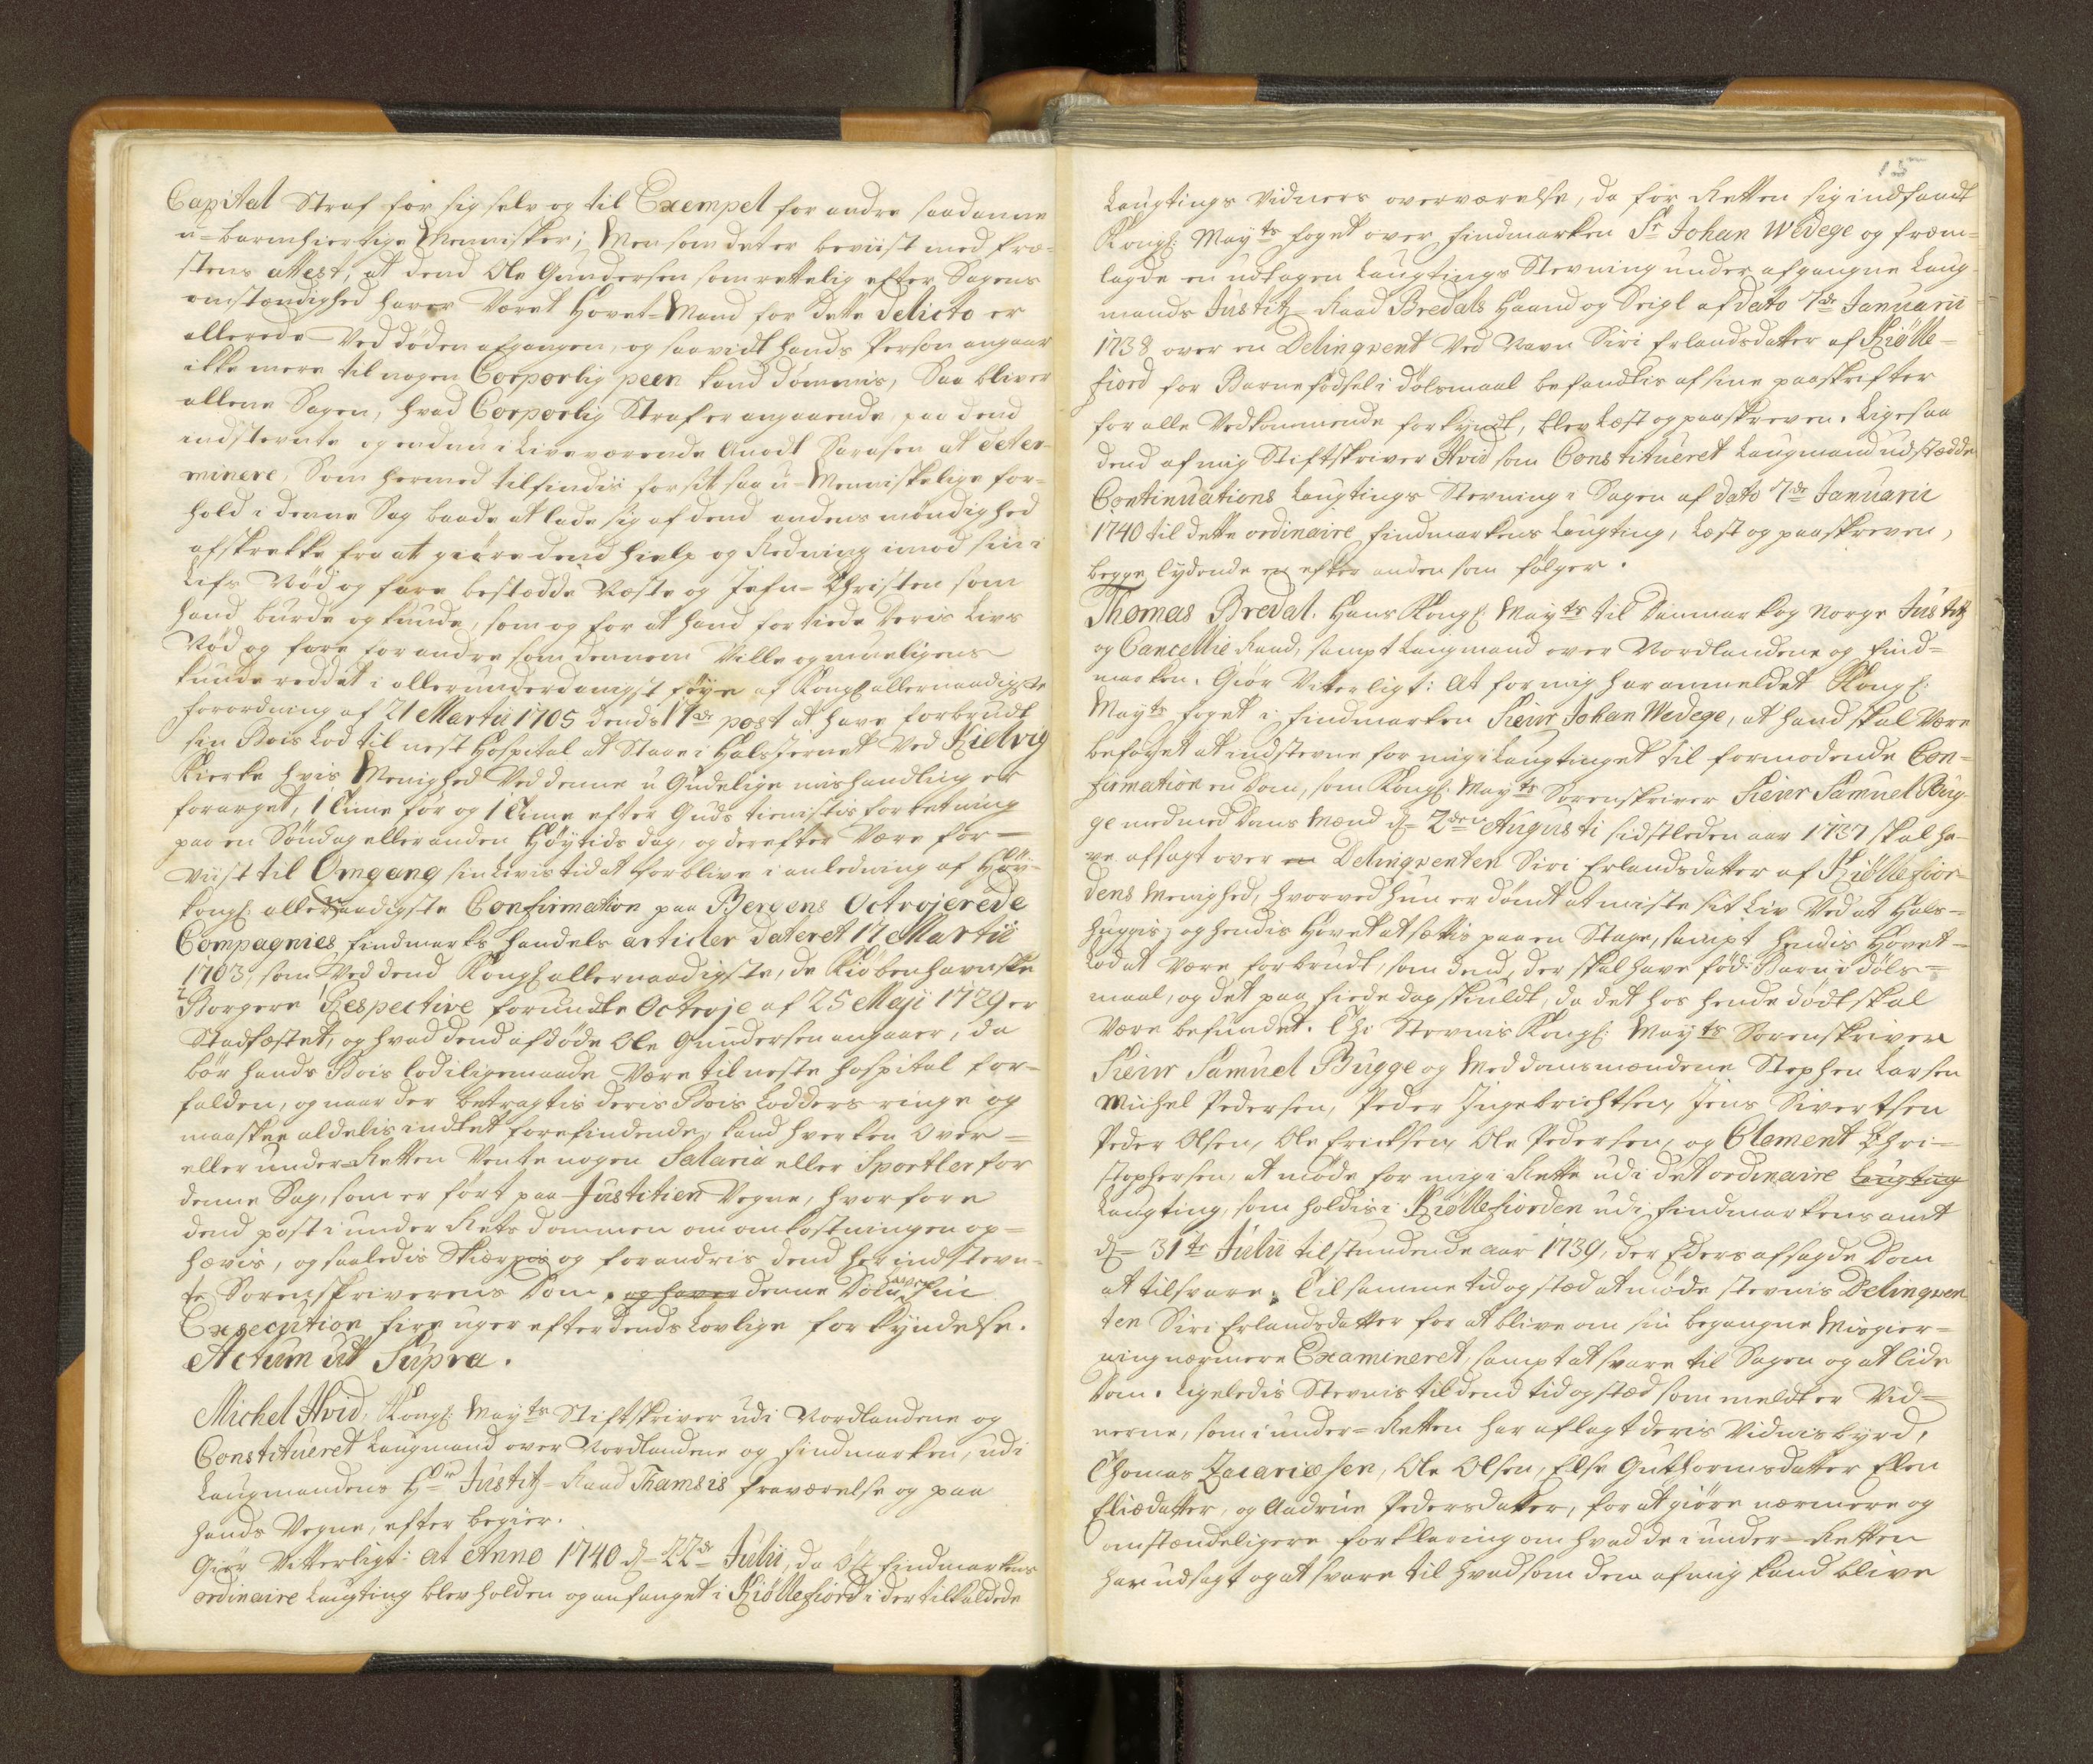 Capital Straf for sig selv og til Exempel for andre saadanne
u-barmhiertige Mennisker; Men som det er beviist med Præ-
stens attest, at dend Ole Gundersen som rettelig efter Sagens
omstændighed haver Været Hovet-Mand for dette delicto er
allerede Ved døden afgangen, og saavidt hands Person angaar
ikke mere til nogen Corporlig peen kand dømmis, Saa bliver
allene Sagen, hvad Corporlig Straf er angaaende, paa dend
indstevnte og endnu i Live værende Anodt Sarasen at deter-
minere, Som hermed tilfindis for sit saa u-Menniskelige for-
hold i denne Sag baade at lade sig af dend andens myndighed
afskrekke fra at giøre dend hielp og Redning imod sin i
Lifs Nød og fare bestædde Næste og Jefn-Christen som
hand burde og kunde, som og for at hand fortiede deris Livs
Nød og fare for andre som dennem Ville og mueligens
kunde reddet i allerunderdanigst følge af Kongl: allernaadigste
forordning af 21 Martii 1705 dends 17de post at have forbrudt
sin Bois Lod til nest Hospital at Staae i Halsjernet Ved Kielvig
Kierke hvis Menighed Ved denne u Gudelige mishandling er
forarget, 1 Time før og 1 Time efter Guds tienistis forretning
paa en Søndag eller anden Høytids dag, og derefter Være for-
viist til Omgang sin Livis tid at forblive i anledning af Høy-
kongl: allernaadigste Confirmation paa Bergens Octrojerede
Compagnies findmarks handels articler dateret 17 Martii
1703, som Ved dend Kongl allernaadigste, de Kiøbenhavnske
Borgere Respective forundte Octroje af 25 Maji 1729 er
Stadfæstet, og hvad dend afdøde Ole Gundersen angaaer, da
bør hands Bois lod i ligemaade Være til neste hospital for-
falden, og naar der betragtis deris Bois Lodders ringe og
maaskee aldelis intet forefindende, kand hverken over-
eller under-Retten Vente nogen Salaria eller Sportler for
denne Sag, som er ført paa Justitien Vegne, hvorfore
dend post i under Rets dommen om omkostningen op-
hævis, og saaledis Skiærpis og forandris dend her indstevn-
te Sorenskriverens Dom, og haver denne Dom haver sin
Execution fire uger efter dends Lovlige forkyndelse.
Actum ut Supra.
Michel Hvid, Kongl: Mayts Stiftskriver udi Nordlandene og
Constitueret Laugmand over Nordlandene og findmarken, udi
Laugmandens Hr Justitz-Raad Thamsis fraværelse og paa
hands Vegne, efter begier.
Giør Vitterligt: at Anno 1740 d 22de Julii, da Øst findmarkens
ordinaire Laugting blev holden og anfanget i Kiøllefiord i der tilkaldede
15
Laugtings Vidners overværelse, da for Retten sig indfandt
Kongl: Mayts foget over findmarken Sr Johan Wedege og frem-
lagde en udtagen Laugtings Stevning under afgangne Laug-
mands Justitz-Raad Bredals Haand og Seigl af dato 7de Januarii
1738 over en Delinqvent Ved Navn Siri Erlandsdatter af Kiølle-
fiord for Barnefødsel i dølsmaal befandtis af sine paaskrifter
for alle Vedkommende forkyndt, blev Læst og paaskreven. Ligesaa
dend af mig Stiftskriver Hvid som Constitueret Laugmand udstædde
Continuations Laugtings Stevning i Sagen af dato 7de Januarii
1740 til dette ordinaire findmarkens Laugting, Læst og paaskreven,
begge lydende en efter anden som følger.
Thomas Bredal. Hans Kongl: Mayts til Danmark og Norge Justitz
og Cancellie Raad, sampt Laugmand over Nordlandene og find-
marken. Giør Viterligt: At for mig har anmeldet Kongl:
Mayts foget i findmarken Sieur Johan Wedege, at hand skal Være
befaget at indstevne for mig i Laugtinget til formodende Con-
firmation en Dom, som Kongl: Mayts Sorenskriver Sieur Samuel Bug-
ge med med Doms Mænd d 2den Augusti sidstleden aar 1737 skal ha-
ve afsagt over en Delinqventen Siri Erlandsdatter af Kiøllefior-
dens Menighed, hvorved hun er dømt at miste sit Liv Ved at Hals-
huggis, og hendis Hovet at settis paa en Stage, sampt hendis Hovet-
Lod at Være forbrudt, som dend, der skal have fød Barn i døls-
maal, og det paa fiede dag skiuldt, da det hos hende dødt skal
Være befundet. Thi Stevnis Kongl: Mayts Sorenskriver
Sieur Samuel Bugge og Meddomsmændene Stephen Larsen
Michel Pedersen, Peder Ingebrichtsen, Jens Sivertsen
Peder Olsen, Ole Ericksen, Ole Pedersen, og Clement Chri-
stophersen, at møde for mig i Rette udi det ordinaire Laugting
Laugting, som holdis i Kiøllefiorden udi findmarkens amt
d 31te Julii tilstundende aar 1739, der Eders afsagde Dom
at tilsvare. Til samme tid og stæd at møde stevnis Delinqven-
ten Siri Erlandsdatter for at blive om sin begangne Misgier-
ning nærmere Examineret, sampt at svare til Sagen og at lide
Dom. Ligeledis Stevnis til dend tid og stæd som meldt er Vid-
nerne, som i under-Retten har aflagt deris Vidnisbyrd,
Thomas Zacariesen, Ole Olsen, Else Guthormsdatter Elen
Eliædatter, og Aadrüe Pedersdatter, for at giøre nærmere og
omstændeligere forklaring om hvad de i under-Retten
har udsagt og at svare til hvad som dem af mig kand blive